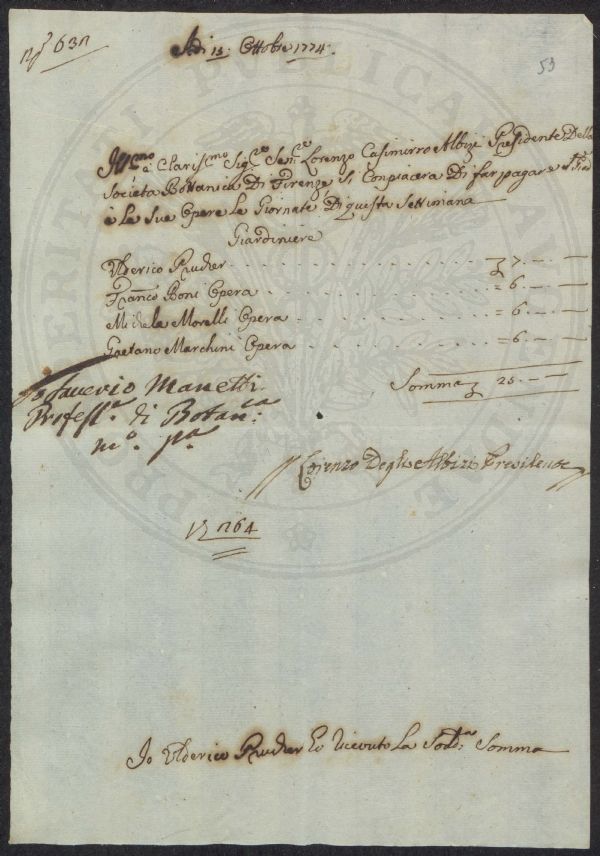 N.º 632
Adì 15: Ottobre 1774:
53
Ill:mo e Claris:mo Sig:re Sen:re Lorenzo Casimirro Albizi Presidente Della
Societa Bottanica Di Firenze, Si Conpiacera Di far pagare
e le Sue Opere Le Giornate, Di questa Settimana
Giardiniere
Ulderico Prucher . . . . . . . . . . . . . . 7. — —
Franc:o Boni Opera . . . . . . . . . . . . = 6. — —
Michele Morelli Opera . . . . . . . . . . = 6. — —
Gaetano Marchini Opera . . . . . . . . = 6. — —
Somma 25. — —
Io Saverio Manetti
Profess:e di Botan:ca
m:o p:a
Lorenzo Degli Albizi Presidente
1264
Io Ulderico Prucher Ho Riceuto La Sod:ta Somma
PROSPERITATI PUBLICAE AUGENDAE